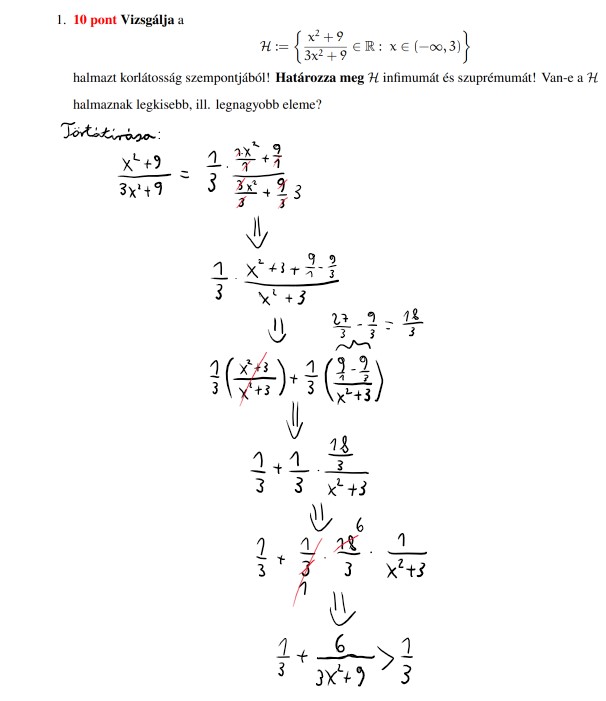 1. 10 pont Vizsgálja a
H := { (x² + 9)/(3x² + 9) ∈ ℝ : x ∈ (−∞, 3) }
halmazt korlátosság szempontjából! Határozza meg H infimumát és szuprémumát! Van-e a H
halmaznak legkisebb, ill. legnagyobb eleme?
Törtátírása:
(x²+9)/(3x²+9) = 1/3 · (1·x²/1 + 9/1)/(3x²/3 + 9/3) 3
⇓
1/3 · (x² + 3 + 9/1 − 9/3)/(x² + 3)
⇓ 27/3 − 9/3 = 18/3
1/3 ((x²+3)/(x²+3)) + 1/3 ((9/1 − 9/3)/(x²+3))
⇓
1/3 + 1/3 · (18/3)/(x²+3)
⇓
1/3 + 1/3 · 18/3 · 1/(x²+3) 6 1
⇓
1/3 + 6/(3x²+9) > 1/3